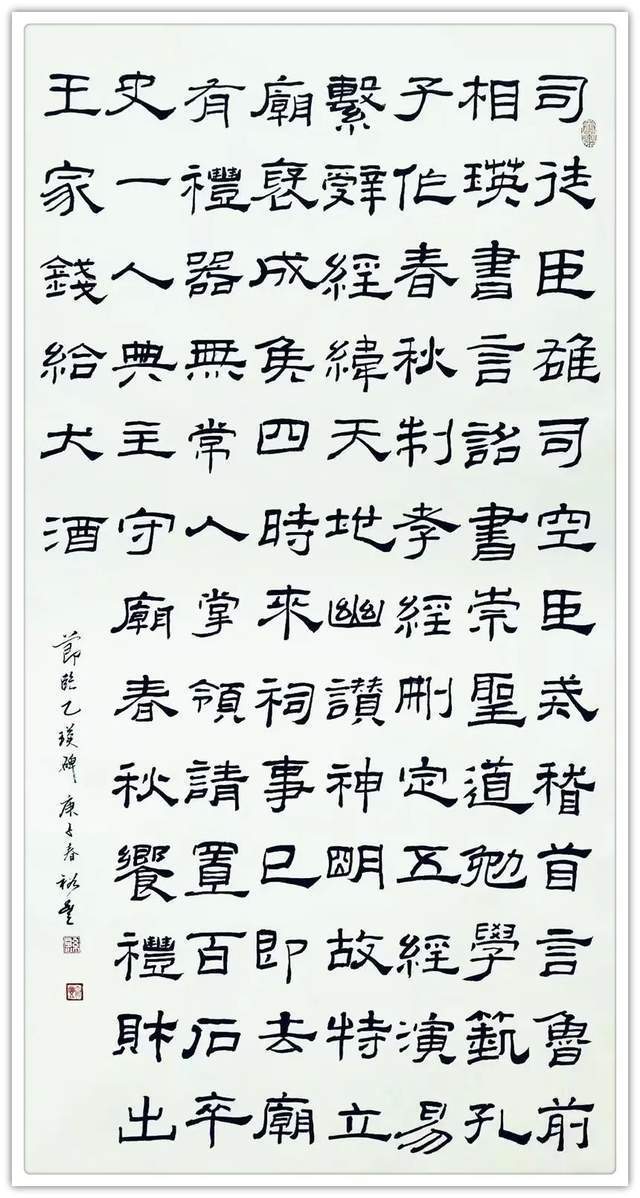 司徒臣雄司空臣戒稽首言魯前
相瑛書言詔書崇聖道勉學藝孔
子作春秋制孝經刪定五經演易
繫辭經緯天地幽讃神明故特立
廟褒成侯四時來祠事已即去廟
有禮器無常人掌領請置百石卒
史一人典主守廟春秋饗禮財出
王家錢給犬酒
節臨乙瑛碑 庚子春